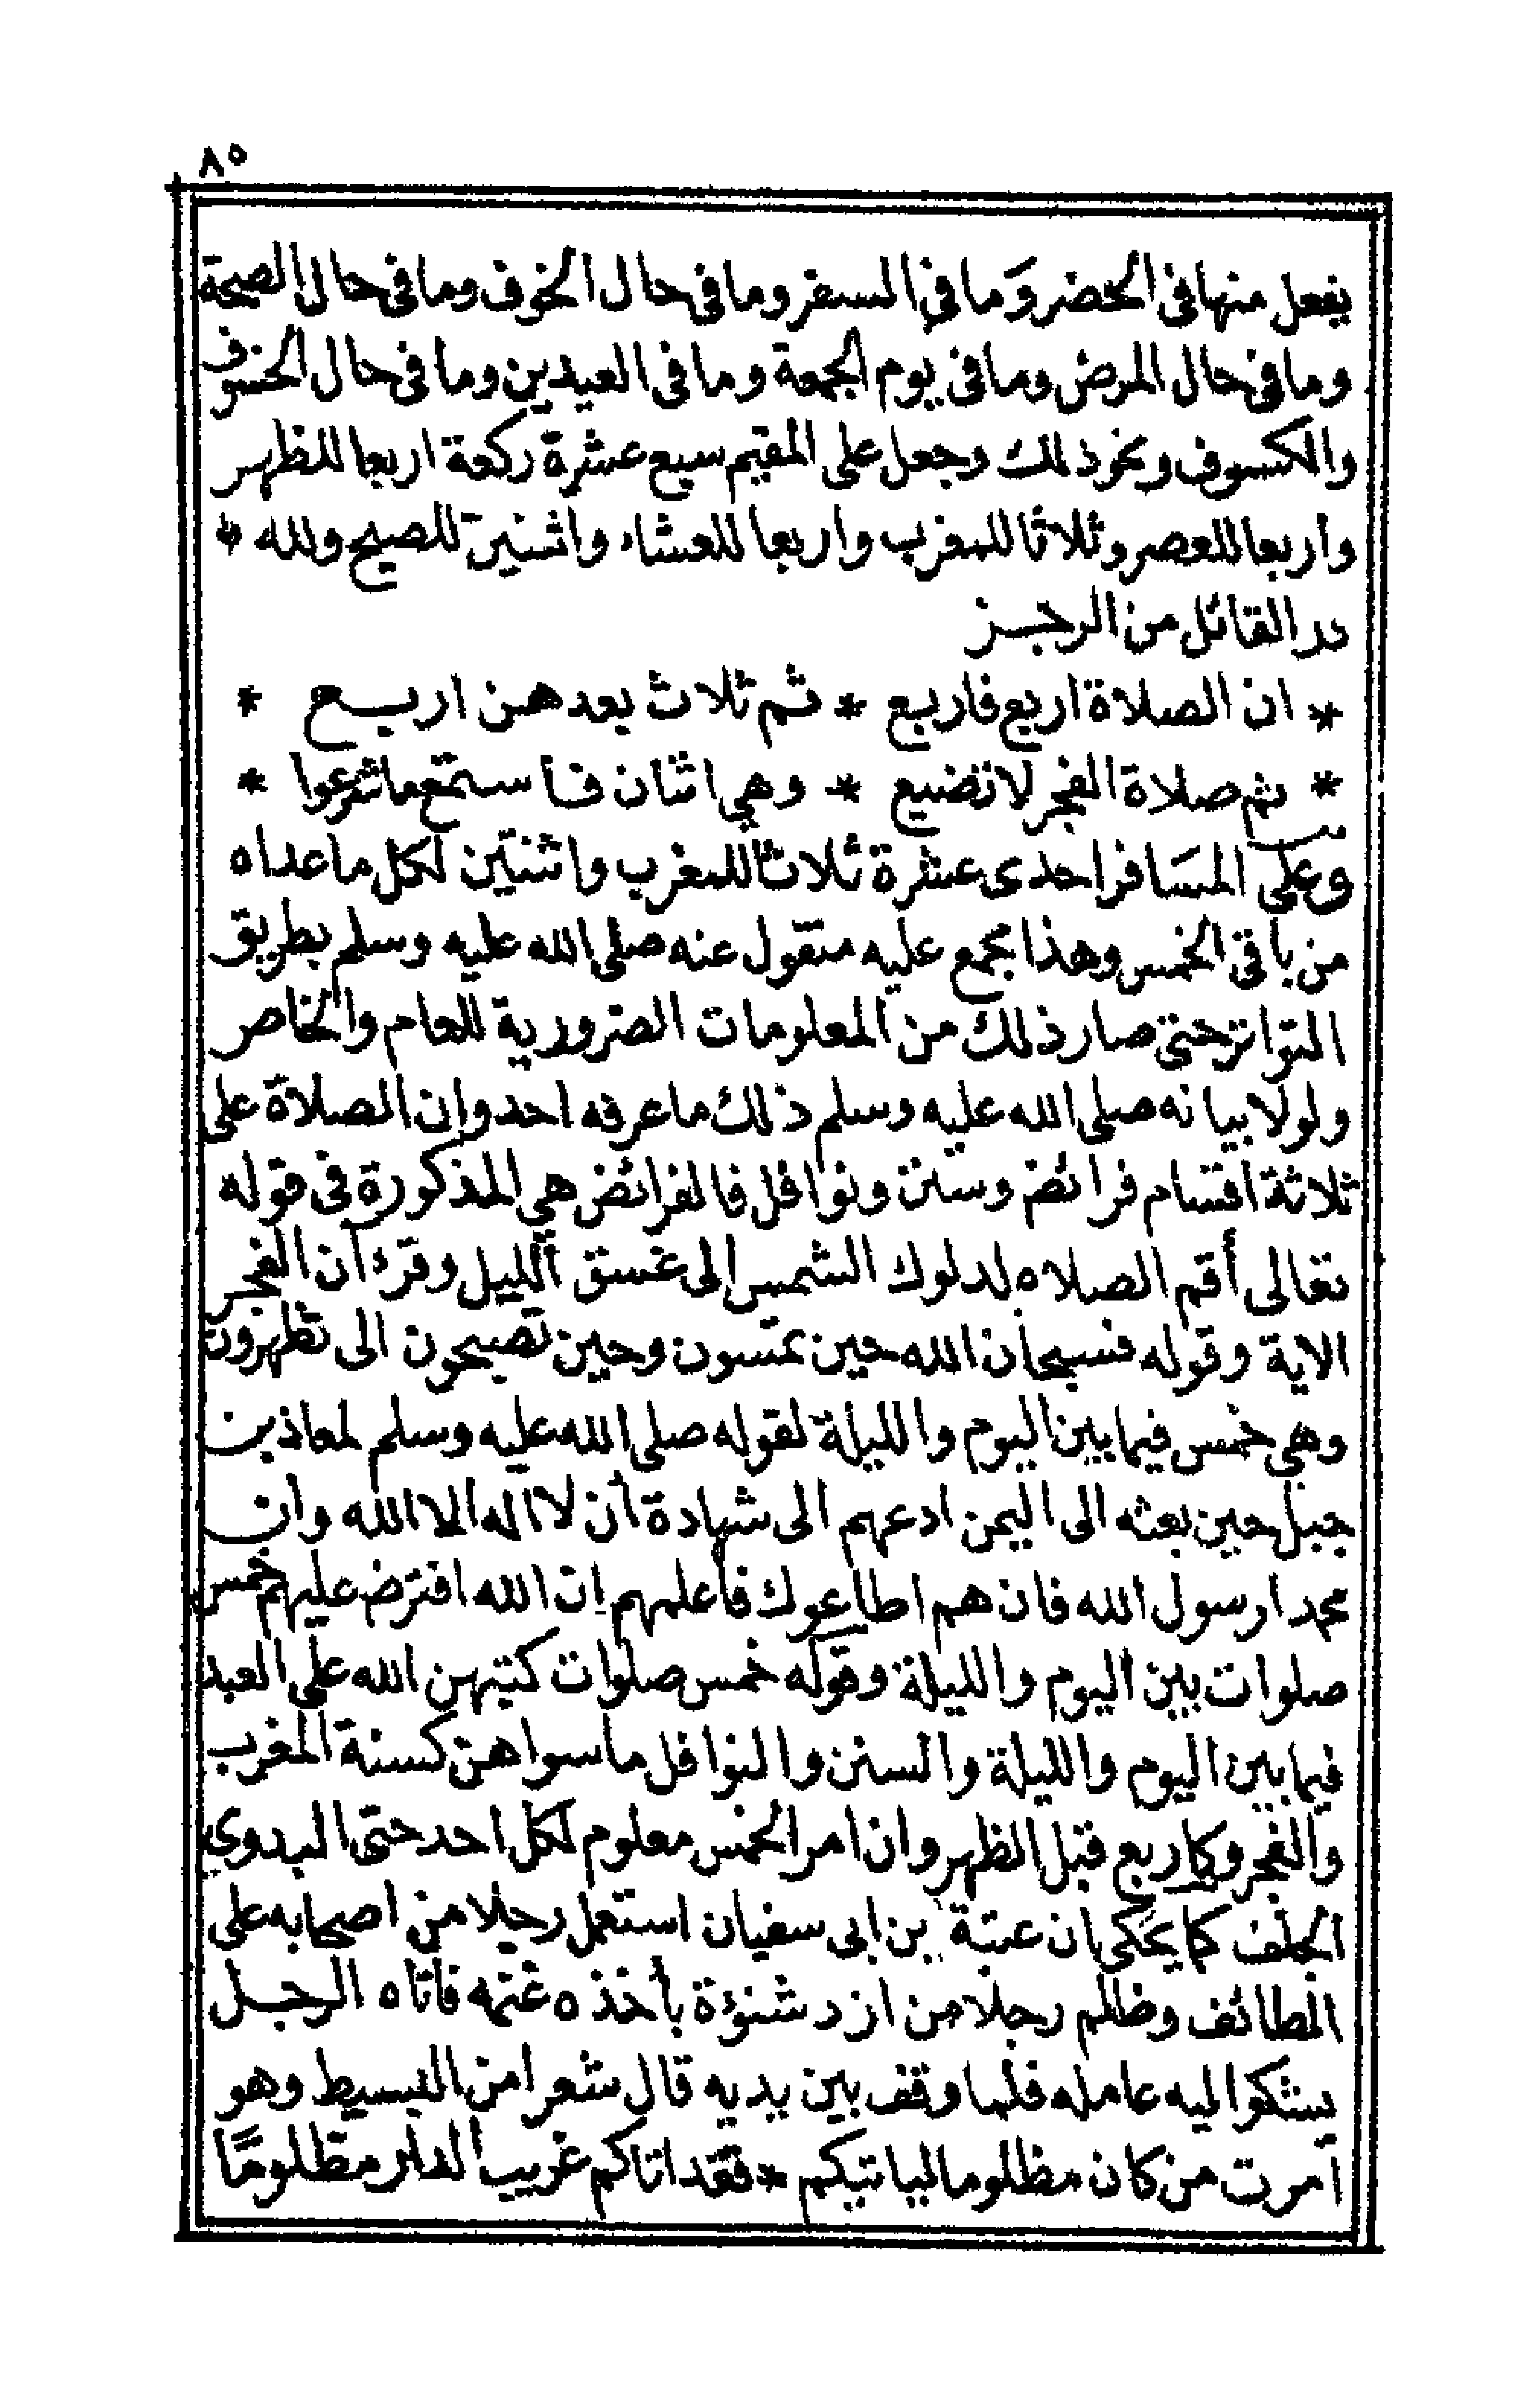 ٨٥
يفعل منها في الحضر وَما في السفر وما في حال الخوف وما في حال الصحة
وما في حال المرض وما في يوم الجمعة وما في العيدين وما في حال الخسوف
والكسوف ونحو ذلك وجعل على المقيم سبع عشرة ركعة اربعا للظهر
وأربعا للعصر وثلاثا للمغرب واربعا للعشاء واثنين للصبح ولله
در القائل من الرجز
* ان الصلاة اربع فاربع * ثم ثلاث بعدهن اربع *
* ثم صلاة الفجر لا تضيع * وهي اثنان فاستمع ما شرعوا *
وعلى المسَافر احدى عشرة ثلاثا للمغرب واثنتين لكل ما عداه
من باقي الخمس وهذا مجمع عليه منقول عنه صلى الله عليه وسلم بطريق
التواتر حتى صار ذلك من المعلومات الضرورية للعام والخاص
ولولا بيانه صلى الله عليه وسلم ذلك ما عرفه احد وان الصلاة على
ثلاثة اقسام فرائض وسنن ونوافل فالفرائض هي المذكورة في قوله
تعالى أقم الصلاه لدلوك الشمس إلى غسق الليل وقرءان الفجر
الاية وقوله فسبحان الله حين تمسون وحين تصبحون الى تظهرون
وهي خمس فيما بين اليوم والليلة لقوله صلى الله عليه وسلم لمعاذ بن
جبل حين بعثه الى اليمن ادعهم الى شهادة أن لا اله الا الله وأن
محمدا رسول الله فان هم اطاعوك فأعلمهم إن الله افترض عليهم خمس
صلوات بين اليوم والليلة وقوله خمس صلوات كتبهن الله على العبد
فيما بين اليوم والليلة والسنن والنوافل ما سواهن كسنة المغرب
والفجر وكاربع قبل الظهر وان امر الخمس معلوم لكل احد حتى البدوي
الجلف كما يحكى ان عتبة بن ابى سفيان استعمل رجلا من اصحابه على
الطائف وظلم رجلا من ازد شنؤة بأخذه غنمه فاتاه الرجل
يشكوا اليه عامله فلما وقف بين يديه قال شعرا من البسيط وهو
امرت من كان مظلوما ليأتيكم * فقد اتاكم غريب الدار مظلومًا